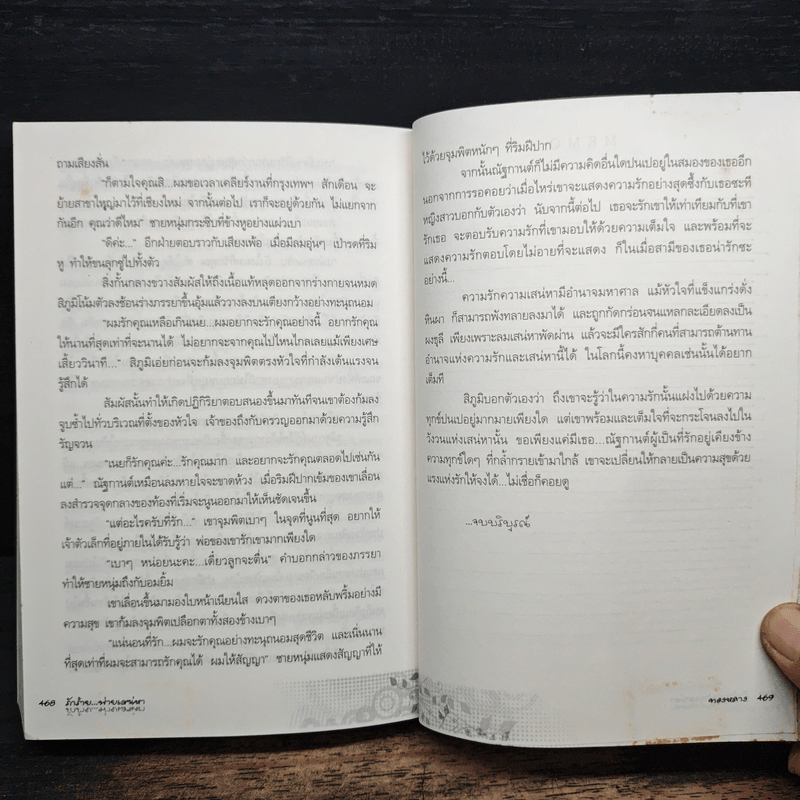 ถามเสียงสั่น
“ก็ตามใจคุณสิ...ผมขอเวลาเคลียร์งานที่กรุงเทพฯ สักเดือน จะ
ย้ายสาขาใหญ่มาไว้ที่เชียงใหม่ จากนั้นต่อไป เราก็จะอยู่ด้วยกัน ไม่แยกจาก
กันอีก คุณว่าดีไหม” ชายหนุ่มกระซิบที่ข้างหูอย่างแผ่วเบา
“ดีค่ะ...” อีกฝ่ายตอบราวกับเสียงเพ้อ เมื่อมีลมอุ่นๆ เป่ารดที่ริม
หู ทำให้ขนลุกซู่ไปทั้งตัว
สิ่งกั้นกลางขวางสัมผัสให้ถึงเนื้อแท้หลุดออกจากร่างกายจนหมด
สิภูมิโน้มตัวลงช้อนร่างภรรยาขึ้นอุ้มแล้ววางลงบนเตียงกว้างอย่างทะนุถนอม
“ผมรักคุณเหลือเกินเนย...ผมอยากจะรักคุณอย่างนี้ อยากรักคุณ
ให้นานที่สุดเท่าที่จะนานได้ ไม่อยากจะจากคุณไปไหนไกลเลยแม้เพียงเศษ
เสี้ยววินาที...” สิภูมิเอ่ยก่อนจะก้มลงจุมพิตตรงหัวใจที่กำลังเต้นแรงจน
รู้สึกได้
สัมผัสนั้นทำให้เกิดปฏิกิริยาตอบสนองขึ้นมาทันทีจนเขาต้องก้มลง
จูบซ้ำไปทั่วบริเวณที่ตั้งของหัวใจ เจ้าของถึงกับครวญออกมาด้วยความรู้สึก
รัญจวน
“เนยก็รักคุณค่ะ...รักคุณมาก และอยากจะรักคุณตลอดไปเช่นกัน
แต่...” ณัฐกานต์เหมือนลมหายใจจะขาดห้วง เมื่อริมฝีปากเข้มของเขาเลื่อน
ลงสำรวจจุดกลางของท้องที่เริ่มจะนูนออกมาให้เห็นชัดเจนขึ้น
“แต่อะไรครับที่รัก...” เขาจุมพิตเบาๆ ในจุดที่นูนที่สุด อยากให้
เจ้าตัวเล็กที่อยู่ภายในได้รับรู้ว่า พ่อของเขารักเขามากเพียงใด
“เบาๆ หน่อยนะคะ...เดี๋ยวลูกจะตื่น” คำบอกกล่าวของภรรยา
ทำให้ชายหนุ่มถึงกับอมยิ้ม
เขาเลื่อนขึ้นมามองใบหน้าเนียนใส ดวงตาของเธอหลับพริ้มอย่างมี
ความสุข เขาก้มลงจุมพิตเปลือกตาทั้งสองข้างเบาๆ
“แน่นอนที่รัก...ผมจะรักคุณอย่างทะนุถนอมสุดชีวิต และเนิ่นนาน
ที่สุดเท่าที่ผมจะสามารถรักคุณได้ ผมให้สัญญา” ชายหนุ่มแสดงสัญญาที่ให้
468 รักร้าย...พ่ายเสน่หา
ไว้ด้วยจุมพิตหนักๆ ที่ริมฝีปาก
จากนั้นณัฐกานต์ก็ไม่มีความคิดอื่นใดปนเปอยู่ในสมองของเธออีก
นอกจากการรอคอยว่าเมื่อไหร่เขาจะแสดงความรักอย่างสุดซึ้งกับเธอซะที
หญิงสาวบอกกับตัวเองว่า นับจากนี้ต่อไป เธอจะรักเขาให้เท่าเทียมกับที่เขา
รักเธอ จะตอบรับความรักที่เขามอบให้ด้วยความเต็มใจ และพร้อมที่จะ
แสดงความรักตอบโดยไม่อายที่จะแสดง ก็ในเมื่อสามีของเธอน่ารักซะ
อย่างนี้...
ความรักความเสน่หามีอำนาจมหาศาล แม้หัวใจที่แข็งแกร่งดั่ง
หินผา ก็สามารถพังทลายลงมาได้ และถูกกัดกร่อนจนแหลกละเอียดลงเป็น
ผงธุลี เพียงเพราะลมเสน่หาพัดผ่าน แล้วจะมีใครสักกี่คนที่สามารถต้านทาน
อำนาจแห่งความรักและเสน่หานี้ได้ ในโลกนี้คงหาบุคคลเช่นนั้นได้อยาก
เต็มที
สิภูมิบอกตัวเองว่า ถึงเขาจะรู้ว่าในความรักนั้นแฝงไปด้วยความ
ทุกข์ปนเปอยู่มากมายเพียงใด แต่เขาพร้อมและเต็มใจที่จะกระโจนลงไปใน
วังวนแห่งเสน่หานั้น ขอเพียงแค่มีเธอ...ณัฐกานต์ผู้เป็นที่รักอยู่เคียงข้าง
ความทุกข์ใดๆ ที่กล้ำกรายเข้ามาใกล้ เขาจะเปลี่ยนให้กลายเป็นความสุขด้วย
แรงแห่งรักให้จงได้...ไม่เชื่อก็คอยดู
...จบบริบูรณ์
ทองหลาง 469